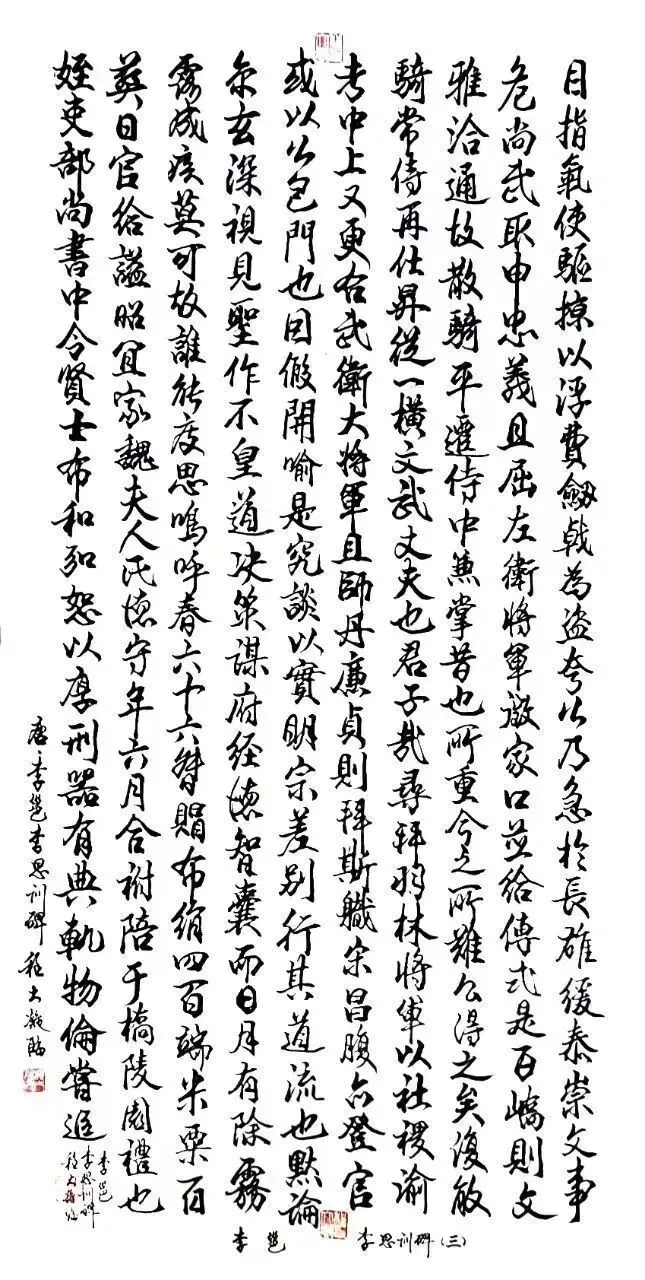 目指氣使驅掠以浮費劒戟為盜夸公乃急於長雄緩泰崇文事
危尚武取申忠義且屈左衛將軍啟家口並給傳弍是百嶠則文
雅洽通故散騎平遷侍中兼掌昔也所重今之所難公得之矣復啟
騎常侍再仕昇從一橫文武丈夫也君子哉尋拜羽林將軍以社稷諭
考中上又更右武衛大將軍且師丹廉貞則拜斯職宋昌腹亦登官
或以公包門也因假開喻是究談以實明宗差別行其道流也默論
尔玄深視見聖作不皇道决策謀府經德智囊而日月有除霧
露成疾莫可故誰能度思嗚呼春六十六贈賻布絹四百端米粟百
葬日官給謚昭宜家魏夫人氏德守年六月合祔陪于橋陵園禮也
姪吏部尚書中令賢士布和弘恕以厚刑器有典軌物倫嘗追
唐·李邕李思訓碑 程大
臨
李邕
李思訓碑
李邕 李思訓碑(三)